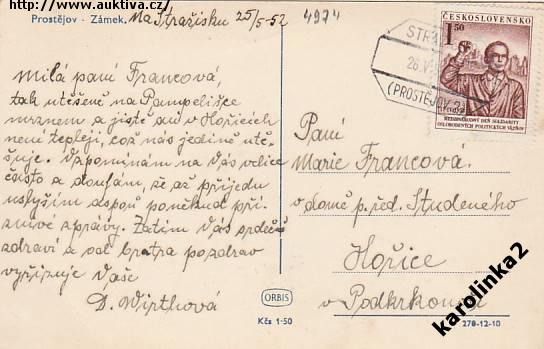 http://www.auktiva.cz/
Prostějov - Zámek.
Na Stražisku 25/5-52
4974
Milá paní Francová,
tak utěšeně na Pampelišce
mrznem a jistě ani v Hořicích
není tepleji, což nás jedině utě-
šuje. Vzpomínám na Vás velice
často a doufám, že až přijedu
uslyším aspoň poněkud pří-
znivé zprávy. Zatím Vás srdečně
zdraví a od bratra pozdrav
vyřizuje Vaše
D. Wirthová
ORBIS
Kčs 1·50
STRA
26.V
(PROSTĚJOV 2)
ČESKOSLOVENSKO
1 50
MEDZINÁRODNÝ DEŇ SOLIDARITY
OSLOBODENÝCH POLITICKÝCH VÄZŇOV
Paní
Marie Francová.
v domě p. řed. Studeného
Hořice
v Podkrkonoší
278-12-10
karolinka2